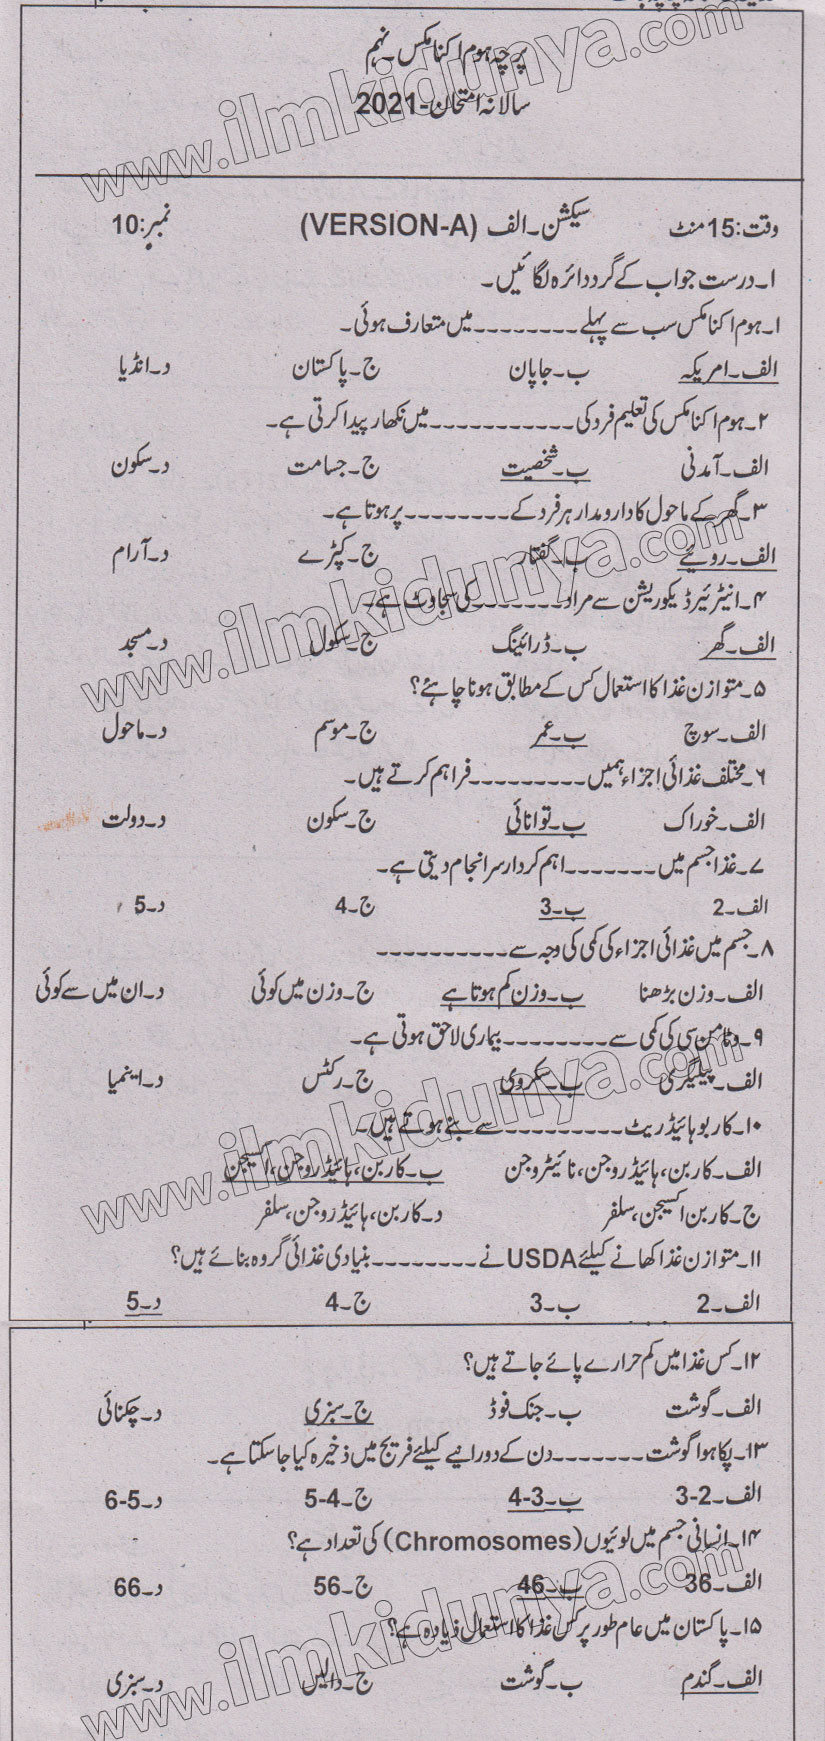 پرچہ ہوم اکنامکس۔ نہم
سالانہ امتحان-2021
وقت: 15 منٹ سیکشن۔ الف (VERSION-A) نمبر: 10
۱۔ درست جواب کے گرد دائرہ لگائیں۔
۱۔ ہوم اکنامکس سب سے پہلے ۔۔۔۔۔۔۔۔ میں متعارف ہوئی۔
الف۔ امریکہ ب۔ جاپان ج۔ پاکستان د۔ انڈیا
۲۔ ہوم اکنامکس کی تعلیم فرد کی ۔۔۔۔۔۔۔۔۔۔۔ میں نکھار پیدا کرتی ہے۔
الف۔ آمدنی ب۔ شخصیت ج۔ جسامت د۔ سکون
۳۔ گھر کے ماحول کا دارومدار ہر فرد کے ۔۔۔۔۔۔۔۔ پر ہوتا ہے۔
الف۔ رویئے ب۔ گفتار ج۔ کپڑے د۔ آرام
۴۔ انٹیرئیر ڈیکوریشن سے مراد ۔۔۔۔۔۔۔ کی سجاوٹ ہے۔
الف۔ گھر ب۔ ڈرائینگ ج۔ سکول د۔ مسجد
۵۔ متوازن غذا کا استعمال کس کے مطابق ہونا چاہئے؟
الف۔ سوچ ب۔ عمر ج۔ موسم د۔ ماحول
۶۔ مختلف غذائی اجزاء ہمیں ۔۔۔۔۔۔۔۔۔ فراہم کرتے ہیں۔
الف۔ خوراک ب۔ توانائی ج۔ سکون د۔ دولت
۷۔ غذا جسم میں ۔۔۔۔۔۔۔ اہم کردار سرانجام دیتی ہے۔
الف۔ 2 ب۔ 3 ج۔ 4 د۔ 5
۸۔ جسم میں غذائی اجزاء کی کمی کی وجہ سے ۔۔۔۔۔۔۔۔۔۔
الف۔ وزن بڑھنا ب۔ وزن کم ہوتا ہے ج۔ وزن میں کوئی د۔ ان میں سے کوئی
۹۔ وٹامن سی کی کمی سے ۔۔۔۔۔۔۔۔ بیماری لاحق ہوتی ہے۔
الف۔ پیلیگری ب۔ سکروی ج۔ رکٹس د۔ اینمیا
۱۰۔ کاربوہائیڈریٹ ۔۔۔۔۔۔۔۔۔ سے بنے ہوتے ہیں۔
الف۔ کاربن، ہائیڈروجن، نائیٹروجن ب۔ کاربن، ہائیڈروجن، آکسیجن
ج۔ کاربن آکسیجن، سلفر د۔ کاربن، ہائیڈروجن، سلفر
۱۱۔ متوازن غذا کھانے کیلئے USDA نے ۔۔۔۔۔۔۔۔ بنیادی غذائی گروہ بنائے ہیں؟
الف۔ 2 ب۔ 3 ج۔ 4 د۔ 5
۱۲۔ کس غذا میں کم حرارے پائے جاتے ہیں؟
الف۔ گوشت ب۔ جنک فوڈ ج۔ سبزی د۔ چکنائی
۱۳۔ پکا ہوا گوشت ۔۔۔۔۔۔۔ دن کے دورانیے کیلئے فریج میں ذخیرہ کیا جاسکتا ہے۔
الف۔ 2-3 ب۔ 3-4 ج۔ 4-5 د۔ 5-6
۱۴۔ انسانی جسم میں لونیوں (Chromosomes) کی تعداد ہے؟
الف۔ 36 ب۔ 46 ج۔ 56 د۔ 66
۱۵۔ پاکستان میں عام طور پر کس غذا کا استعمال زیادہ ہے؟
الف۔ گندم ب۔ گوشت ج۔ دالیں د۔ سبزی
www.ilmkidunya.com
www.ilmkidunya.com
www.ilmkidunya.com
www.ilmkidunya.com